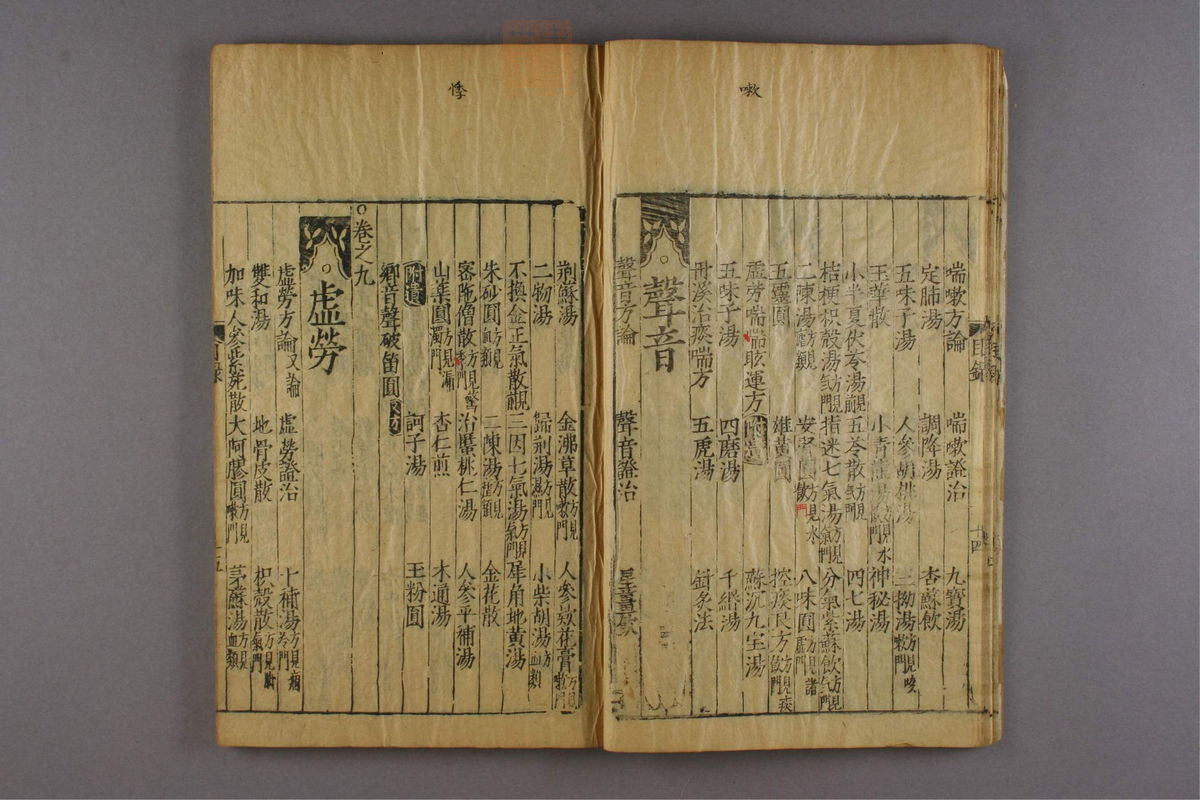 嗽
喘嗽方論 喘嗽證治 九寶湯
定肺湯 調降湯 杏蘇飲
五味子湯 人參胡桃湯 三拗湯方見咳嗽門
玉華散 小青龍湯 神秘湯
小半夏伏苓湯 五苓散 四七湯
桔梗枳殼湯方見氣門 指迷七氣湯方見氣門 分氣紫蘇飲方見氣門
二陳湯 安腎圓 八味圓方見諸虛門
五靈圓 雄黃圓 控痰良方方見痰飲門
虛勞喘喘眩運方 附遺 蘇沉九宝湯
五味子湯 四磨湯 千緡湯
丹溪治痰喘方 五虎湯 針灸法
聲音
聲音方論 聲音證治
目錄
十四
悸
荊蘇湯 金沸草散方見嗽門 人參欵花膏方見嗽門
二物湯 歸荊湯 小柴胡湯
不換金正氣散 三因七氣湯方見氣門 犀角地黃湯
朱砂圓 二陳湯 金花散
密陀僧散 治䘌桃仁湯 人參平補湯
山藥圓 杏仁煎 木通湯
附遺 訶子湯 玉粉圓
鄉音聲破笛圓
卷之九
虛勞
虛勞方論又論 虛勞證治 十補湯
雙和湯 地骨皮散 枳殼散
加味人參紫菀散 大阿膠圓方見嗽門 茅蘇湯方見血類
目錄
十五